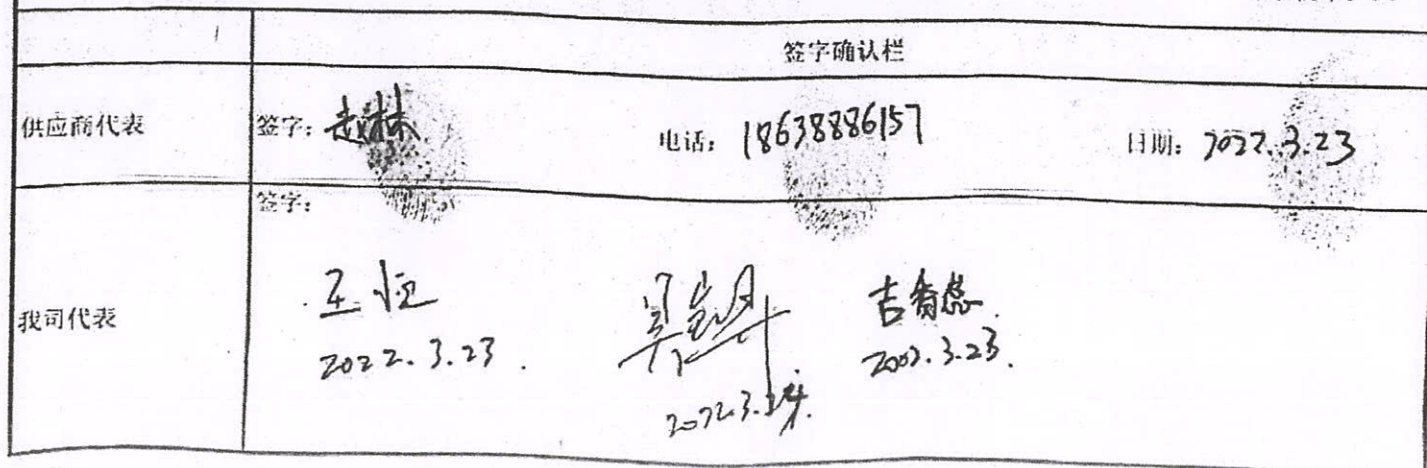 签字确认栏
供应商代表 签字：赵林 电话：18638886157 日期：2022.3.23
签字：
我司代表
王恒 吉香蕊
2022.3.23. 2022.3.24. 2002.3.23.